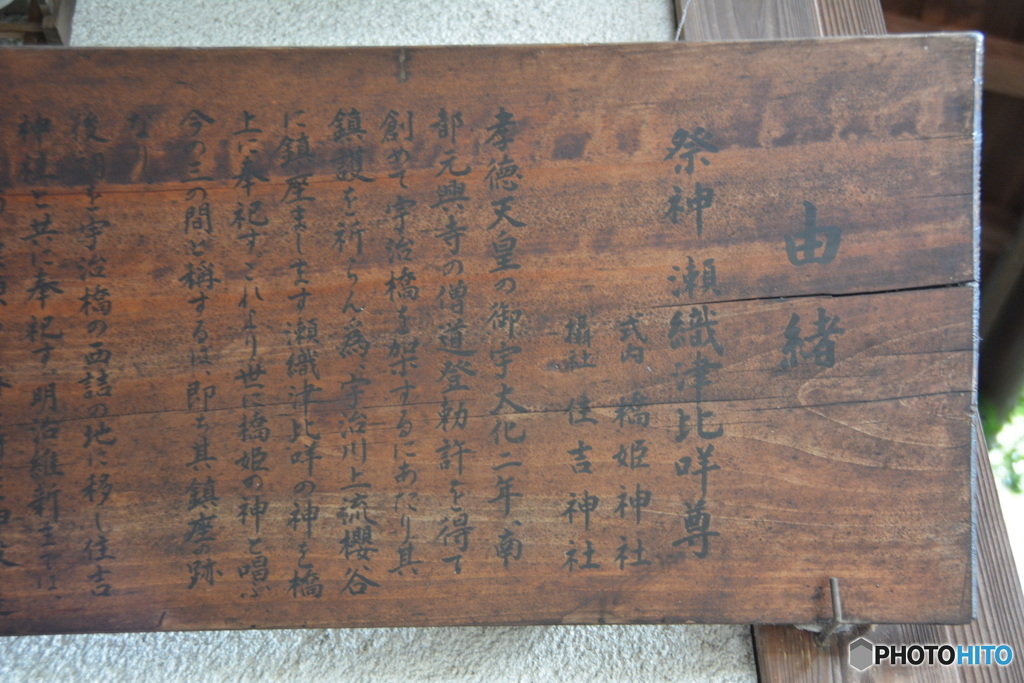 由緒
祭神 瀬織津比咩尊
式内 橋姫神社
攝社 住吉神社
孝徳天皇の御宇大化二年、南
都元興寺の僧道登勅許を得て
創めて宇治橋を架するにあたり其
鎮護を祈らん為、宇治川上流櫻谷
に鎮座まします瀬織津比咩の神を橋
上に奉祀す、これより世に橋姫の神と唱ふ
今の三の間と稱するは、即ち其鎮座の跡
なり
後祠を宇治橋の西詰の地に移し住吉
神社と共に奉祀す、明治維新までは、
PHOTOHITO